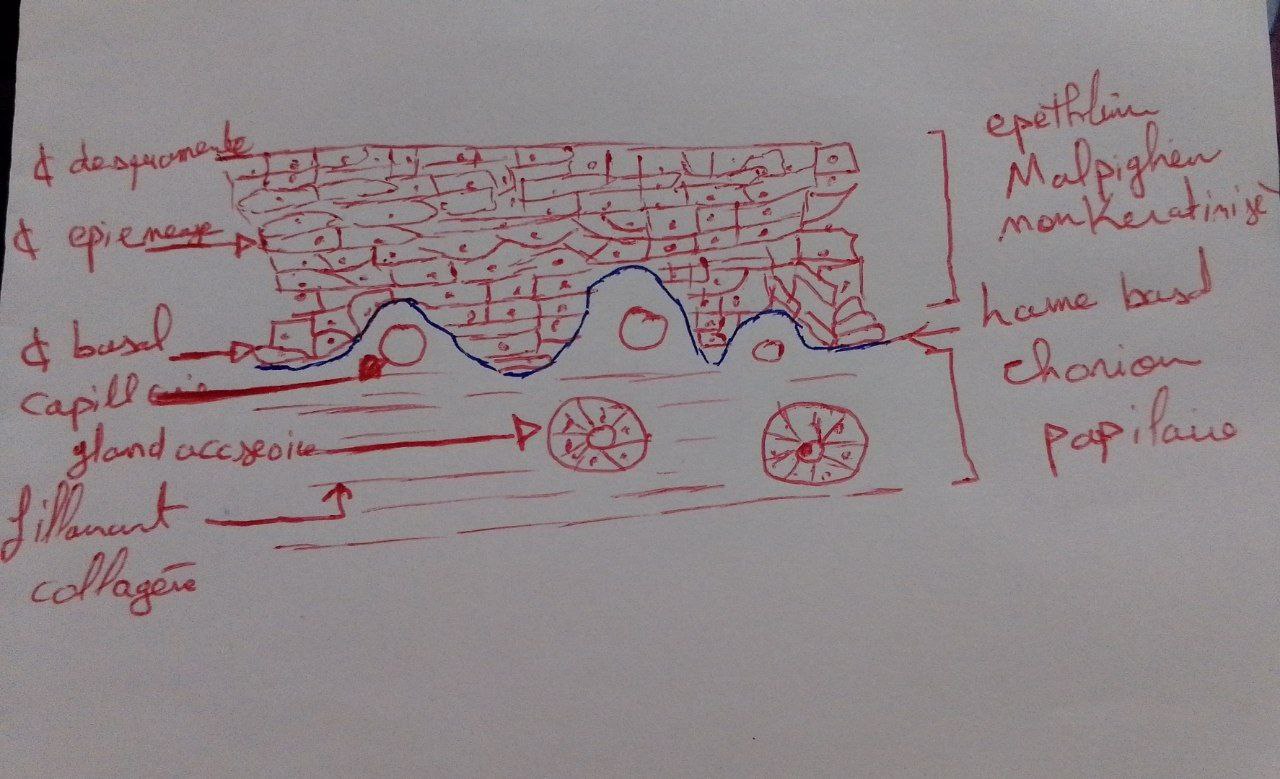 ¢ desquamante
¢ epiemeuse
¢ basal
capillaire
gland accseoire
fillamant
collagéne
epethlium
Malpighien
nonkeratinisé
lame basal
chorion
papilaire